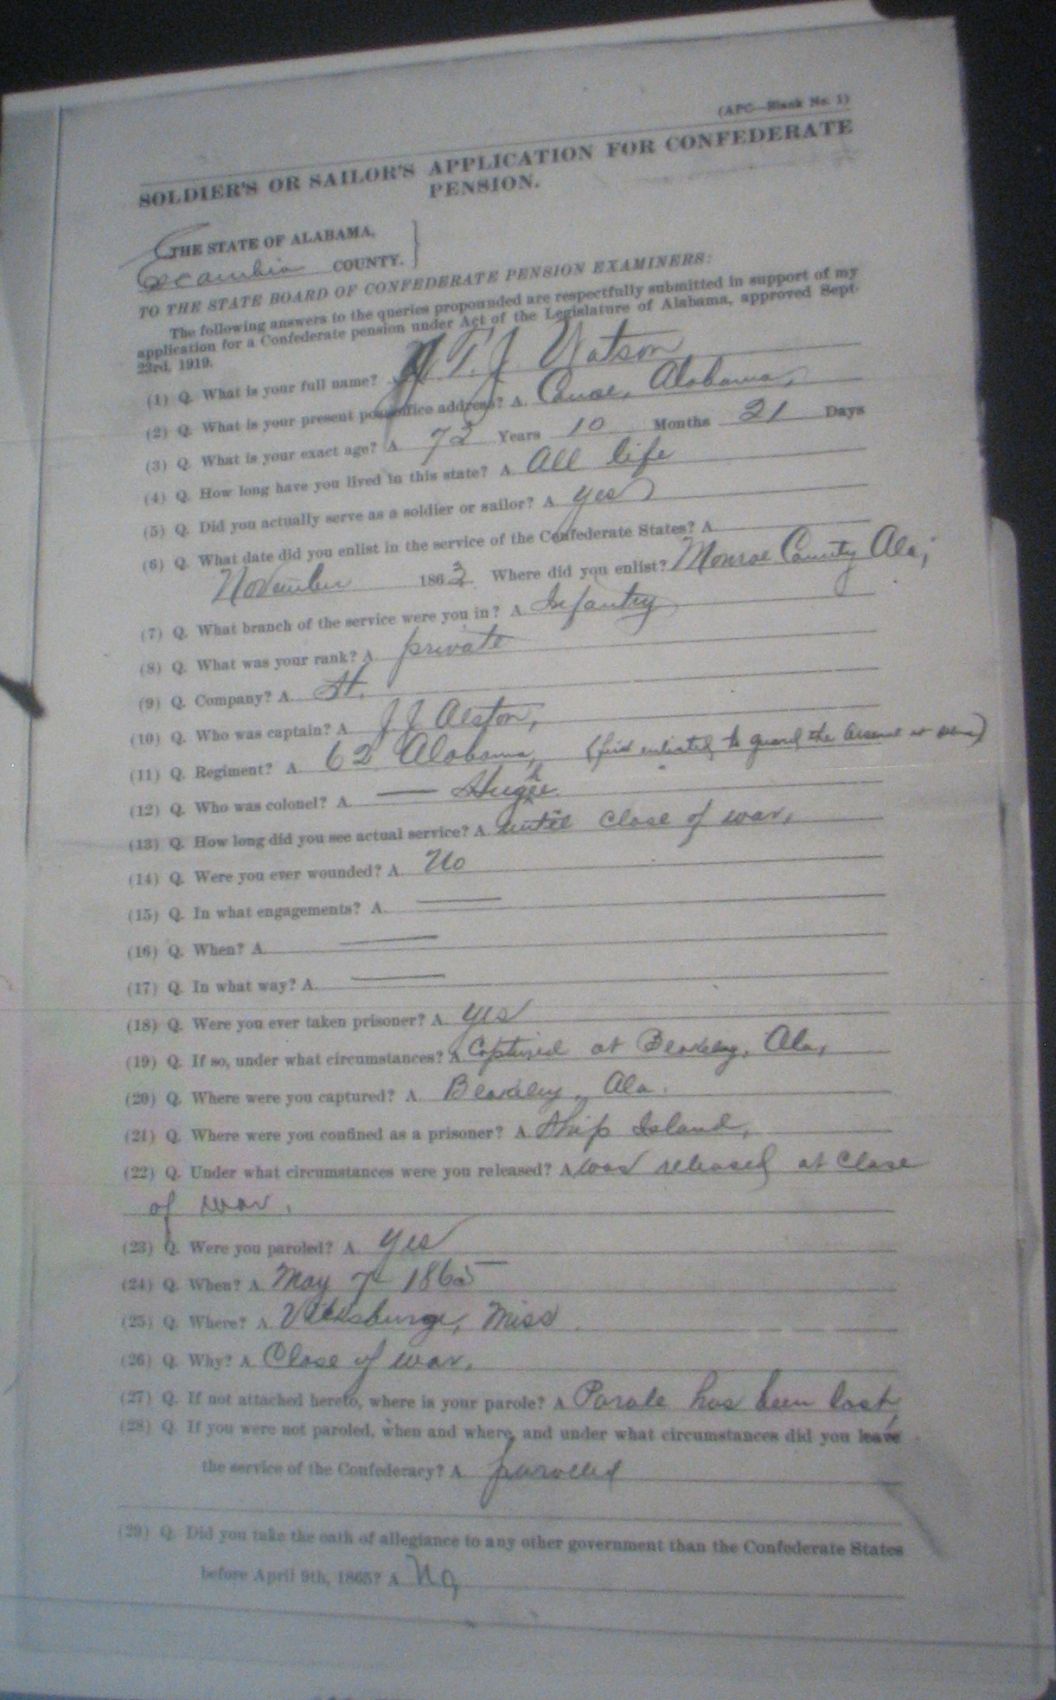 (APC—Blank No. 1)
SOLDIER'S OR SAILOR'S APPLICATION FOR CONFEDERATE
PENSION.
THE STATE OF ALABAMA,
Escambia COUNTY.
TO THE STATE BOARD OF CONFEDERATE PENSION EXAMINERS:
The following answers to the queries propounded are respectfully submitted in support of my
application for a Confederate pension under Act of the Legislature of Alabama, approved Sept.
23rd, 1919.
(1) Q. What is your full name? T. J. Watson
(2) Q. What is your present postoffice address? A. Canoe, Alabama,
(3) Q. What is your exact age? A 72 Years 10 Months 21 Days
(4) Q. How long have you lived in this state? A. All life
(5) Q. Did you actually serve as a soldier or sailor? A. yes
(6) Q. What date did you enlist in the service of the Confederate States? A.
November 1863 Where did you enlist? Monroe County Ala,
(7) Q. What branch of the service were you in? A. Infantry
(8) Q. What was your rank? A. private
(9) Q. Company? A. H.
(10) Q. Who was captain? A. J J Alston,
(11) Q. Regiment? A. 62 Alabama, (first enlisted to guard the Arsenal at Selma)
(12) Q. Who was colonel? A. —
(13) Q. How long did you see actual service? A. until close of war,
(14) Q. Were you ever wounded? A. No
(15) Q. In what engagements? A. —
(16) Q. When? A. —
(17) Q. In what way? A. —
(18) Q. Were you ever taken prisoner? A. yes
(19) Q. If so, under what circumstances? A. Captured at Blakeley, Ala,
(20) Q. Where were you captured? A. Blakeley, Ala.
(21) Q. Where were you confined as a prisoner? A. Ship Island,
(22) Q. Under what circumstances were you released? A. was released at close
of war,
(23) Q. Were you paroled? A. yes
(24) Q. When? A. May 7 – 1865
(25) Q. Where? A. Vicksburge, Miss.
(26) Q. Why? A. Close of war,
(27) Q. If not attached hereto, where is your parole? A. Parole has been lost,
(28) Q. If you were not paroled, when and where, and under what circumstances did you leave
the service of the Confederacy? A. parolled
(29) Q. Did you take the oath of allegiance to any other government than the Confederate States
before April 9th, 1865? A. No